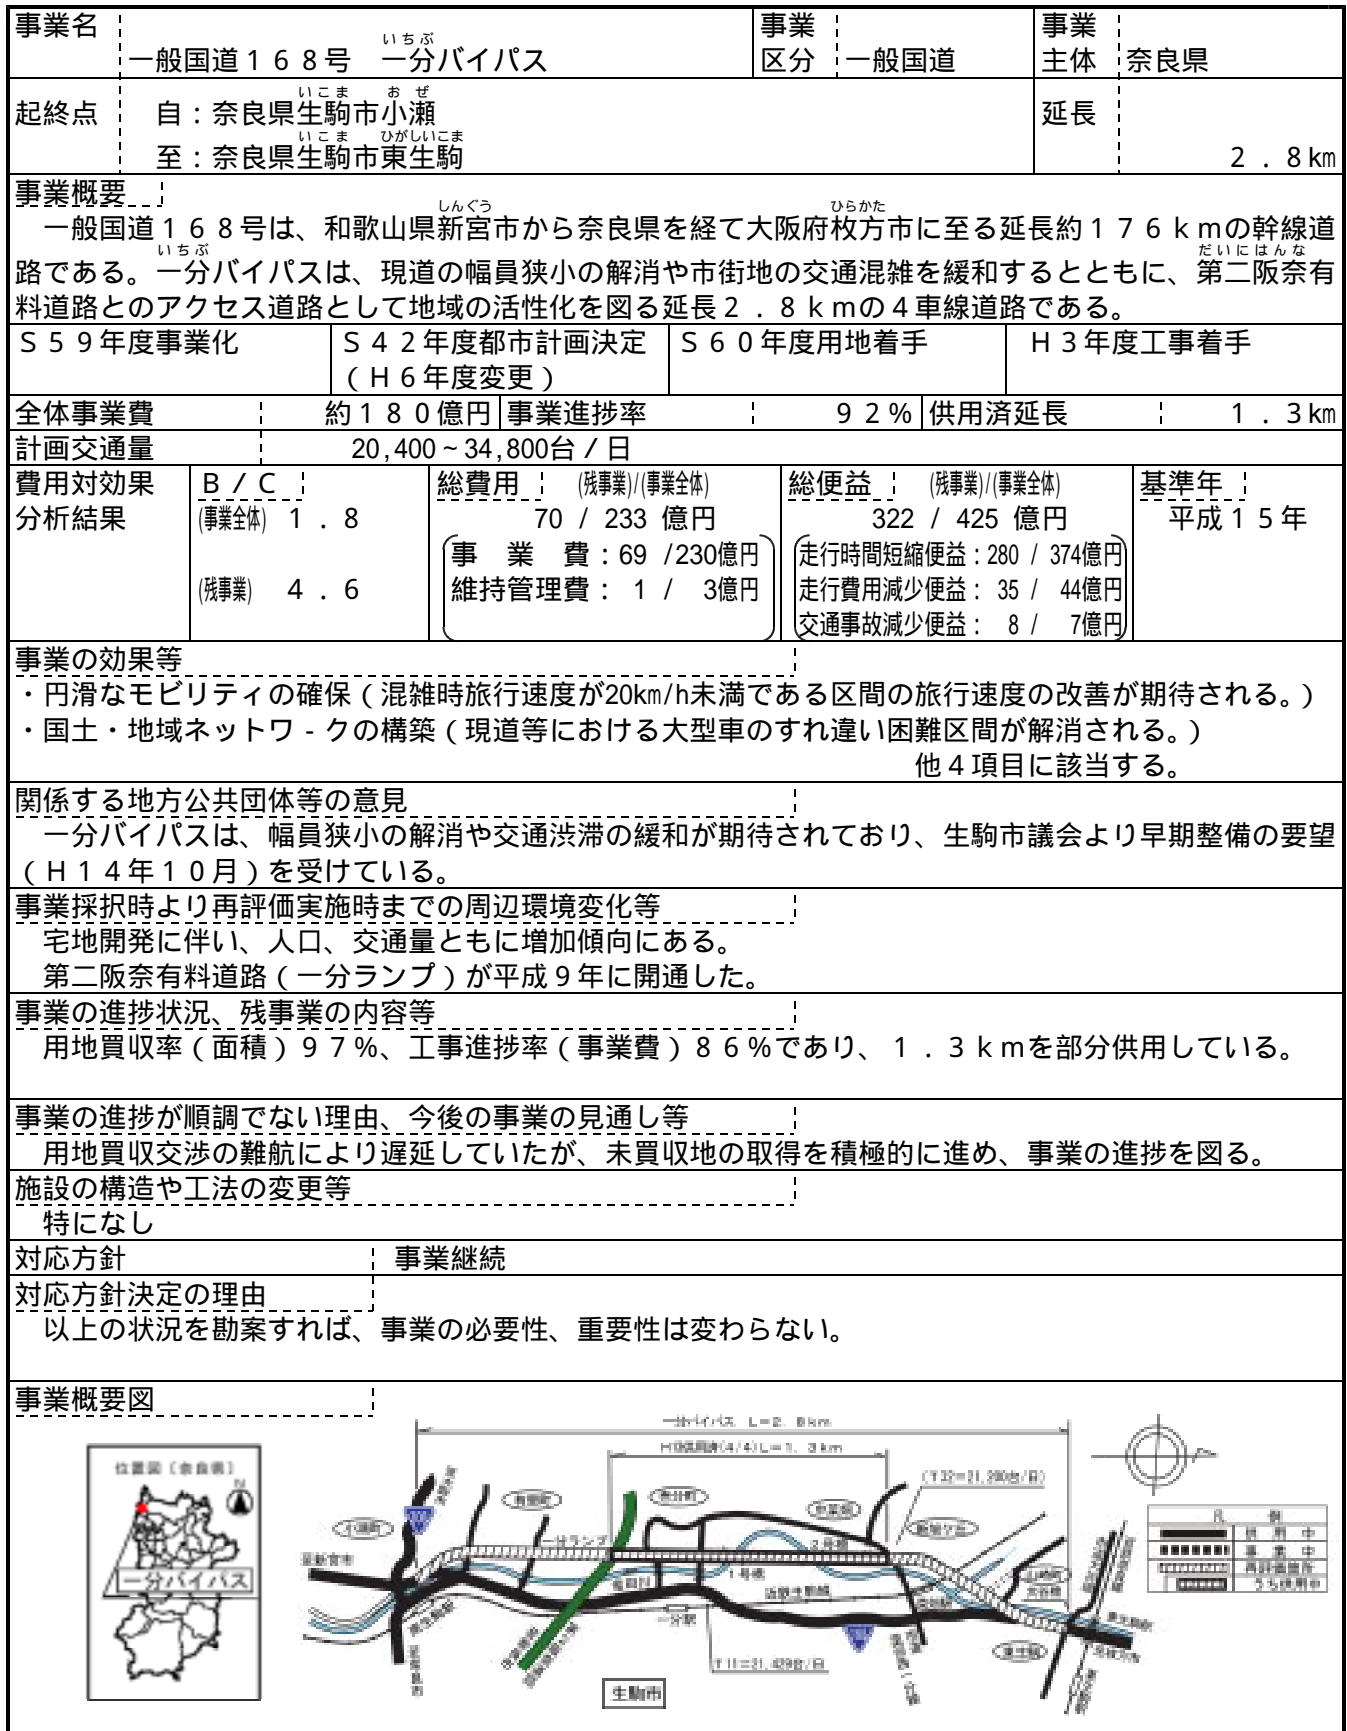 事業名
いちぶ
一般国道１６８号　一分バイパス
事業
区分
一般国道
事業
主体
奈良県
起終点
いこま　おぜ
自：奈良県生駒市小瀬
いこま　ひがしいこま
至：奈良県生駒市東生駒
延長
２．８㎞
事業概要
しんぐう　ひらかた
一般国道１６８号は、和歌山県新宮市から奈良県を経て大阪府枚方市に至る延長約１７６ｋｍの幹線道
いちぶ　だいにはんな
路である。一分バイパスは、現道の幅員狭小の解消や市街地の交通混雑を緩和するとともに、第二阪奈有
料道路とのアクセス道路として地域の活性化を図る延長２．８ｋｍの４車線道路である。
Ｓ５９年度事業化
Ｓ４２年度都市計画決定
（Ｈ６年度変更）
Ｓ６０年度用地着手
Ｈ３年度工事着手
全体事業費　約１８０億円
事業進捗率　９２％
供用済延長　１．３㎞
計画交通量　20,400～34,800台／日
費用対効果
分析結果
Ｂ／Ｃ
(事業全体)　１．８
(残事業)　４．６
総費用　(残事業)/(事業全体)
70 / 233 億円
事　業　費：69 /230億円
維持管理費： 1 /　3億円
総便益　(残事業)/(事業全体)
322 / 425 億円
走行時間短縮便益：280 / 374億円
走行費用減少便益： 35 /　44億円
交通事故減少便益： 8 /　7億円
基準年
平成１５年
事業の効果等
・円滑なモビリティの確保（混雑時旅行速度が20㎞/h未満である区間の旅行速度の改善が期待される。）
・国土・地域ネットワ－クの構築（現道等における大型車のすれ違い困難区間が解消される。）
他４項目に該当する。
関係する地方公共団体等の意見
一分バイパスは、幅員狭小の解消や交通渋滞の緩和が期待されており、生駒市議会より早期整備の要望
（Ｈ１４年１０月）を受けている。
事業採択時より再評価実施時までの周辺環境変化等
宅地開発に伴い、人口、交通量ともに増加傾向にある。
第二阪奈有料道路（一分ランプ）が平成９年に開通した。
事業の進捗状況、残事業の内容等
用地買収率（面積）９７％、工事進捗率（事業費）８６％であり、１．３ｋｍを部分供用している。
事業の進捗が順調でない理由、今後の事業の見通し等
用地買収交渉の難航により遅延していたが、未買収地の取得を積極的に進め、事業の進捗を図る。
施設の構造や工法の変更等
特になし
対応方針
事業継続
対応方針決定の理由
以上の状況を勘案すれば、事業の必要性、重要性は変わらない。
事業概要図
一分バイパス　L=2.8km
(4/4)L=1.3km
位置図（奈良県）
N
一分バイパス
小瀬町
至新宮市
一分ランプ
１号橋
２号橋
一分駅
(T32=21,200台/日)
T11=21,429台/日
東生駒
生駒市
凡　例
供用中
事業中
再評価箇所
うち供用中